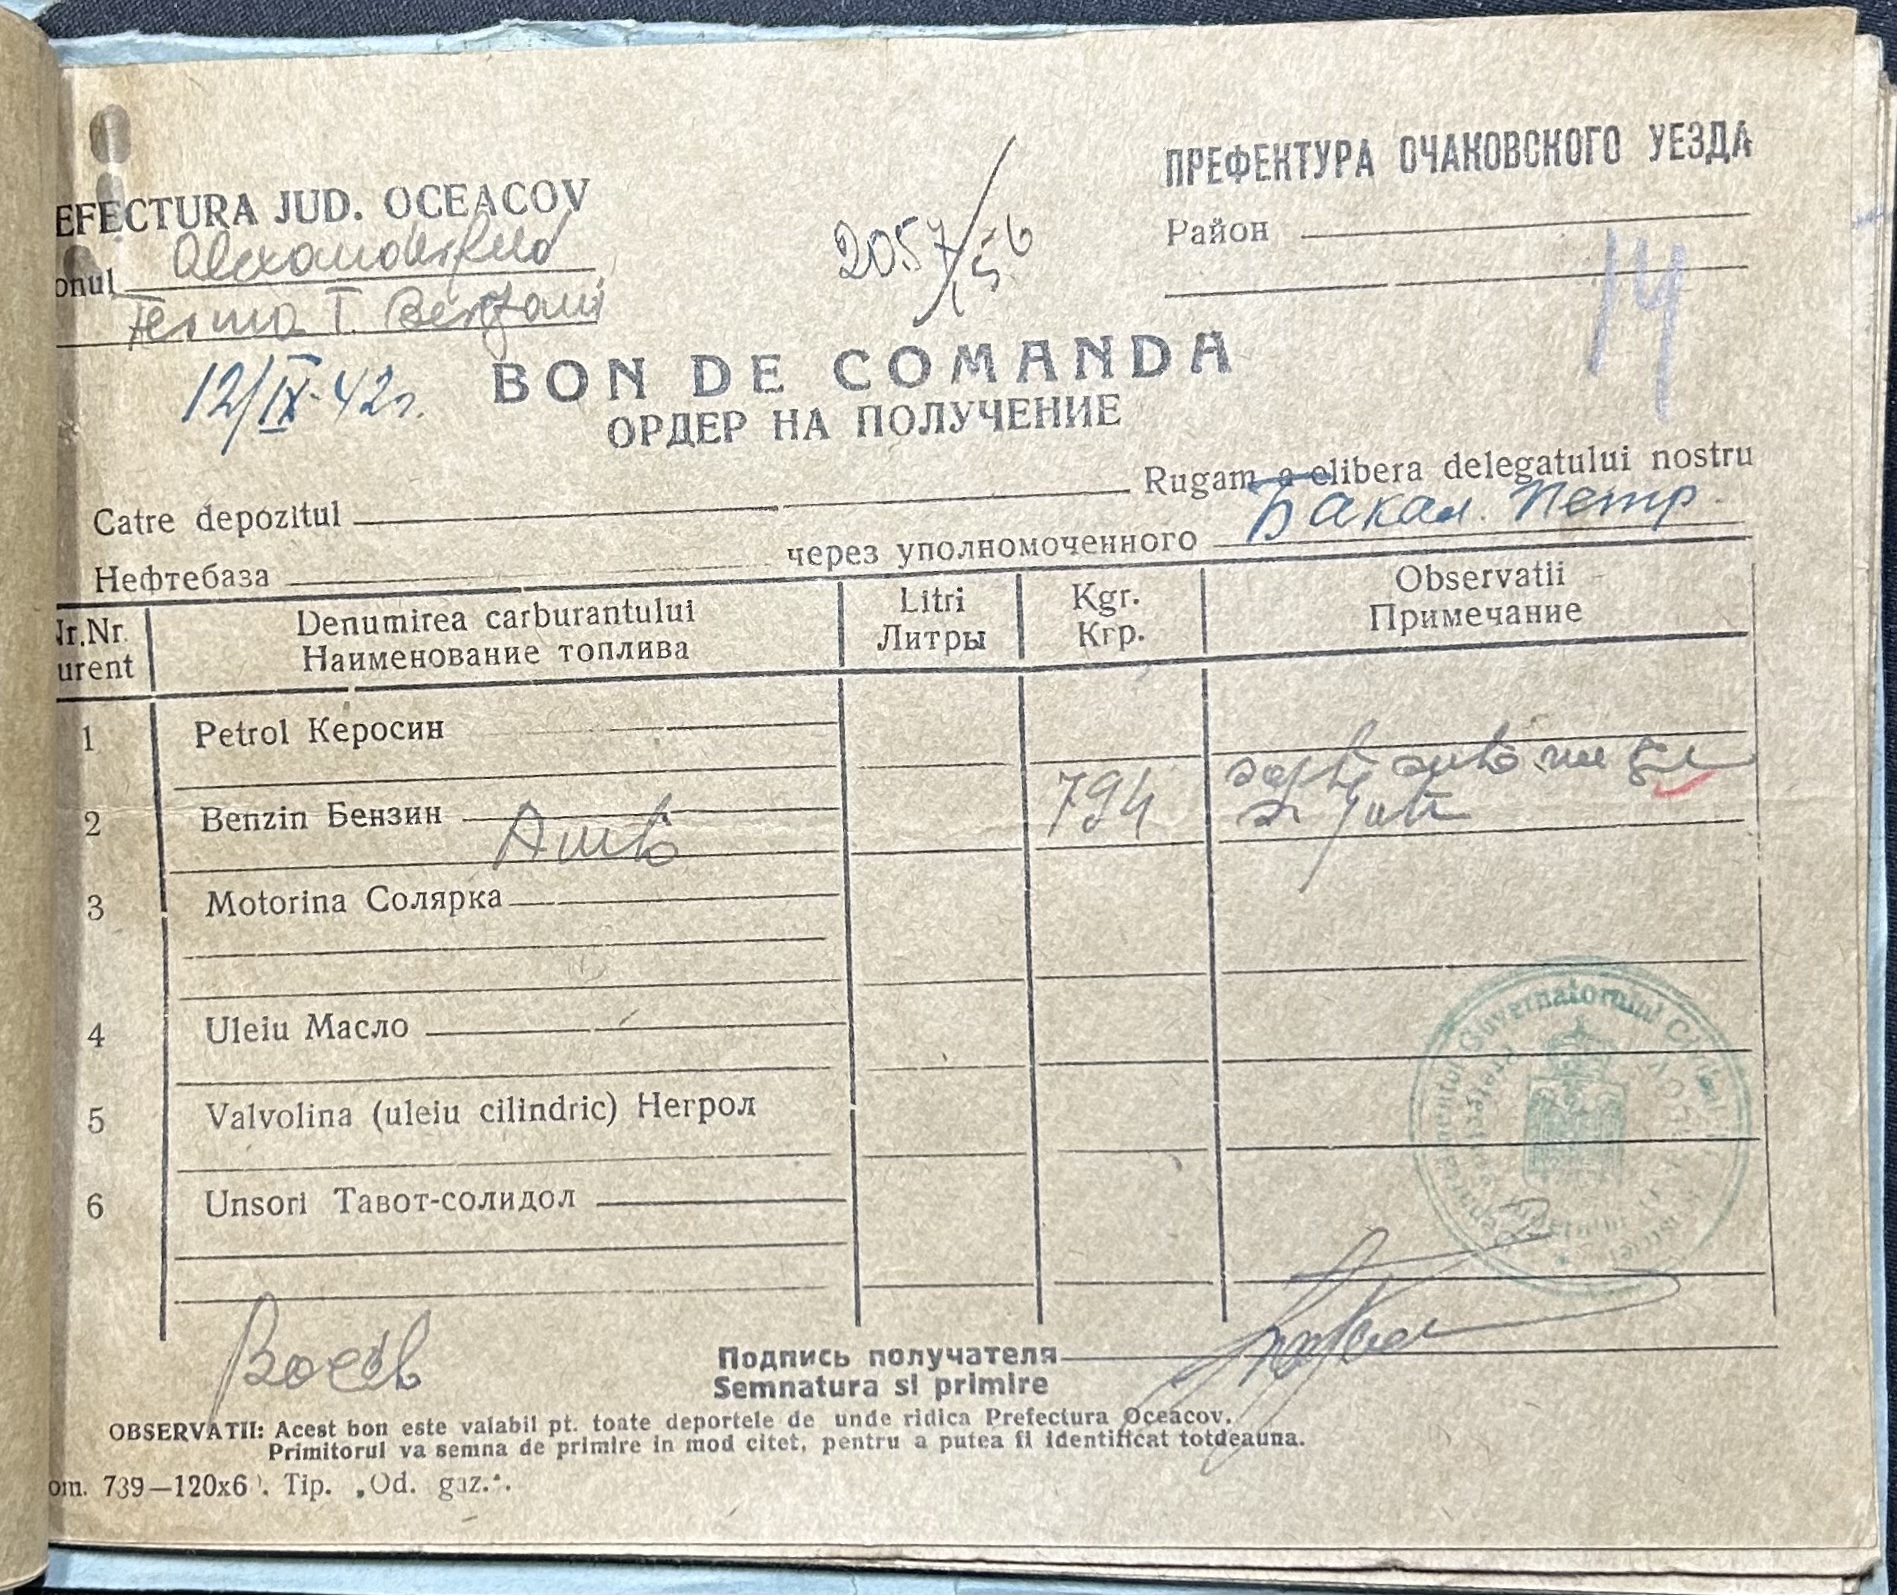 EFECTURA JUD. OCEACOV
ПРЕФЕКТУРА ОЧАКОВСКОГО УЕЗДА
onul Alexanderfeld
Район
Ferma T. Berezani
2057/56
14
12/IX-42г.
BON DE COMANDA
ОРДЕР НА ПОЛУЧЕНИЕ
Catre depozitul Rugam a elibera delegatului nostru
Нефтебаза через уполномоченного Бакал. Петр.
Nr.Nr. urent Denumirea carburantului Litri Kgr. Observatii
Наименование топлива Литры Кгр. Примечание
1 Petrol Керосин
2 Benzin Бензин Auto 794 sapte sute nouă zeci
si patru
3 Motorina Солярка
4 Uleiu Масло
5 Valvolina (uleiu cilindric) Негрол
6 Unsori Тавот-солидол
Guvernatorului Civil
Подпись получателя
Semnatura si primire
OBSERVATII: Acest bon este valabil pt. toate deportele de unde ridica Prefectura Oceacov.
Primitorul va semna de primire in mod citet, pentru a putea fi identificat totdeauna.
om. 739—120x6 . Tip. „Od. gaz.".